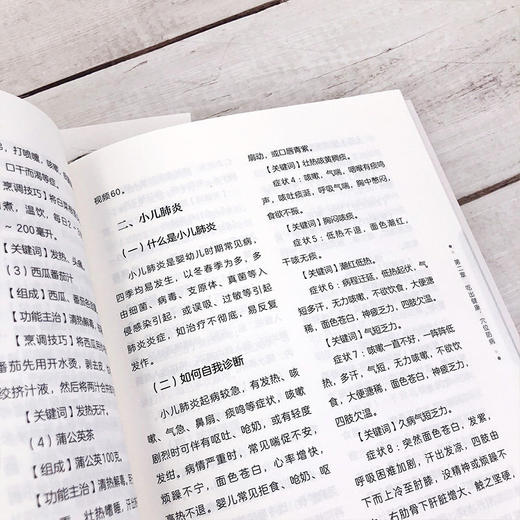 ，打喷嚏，咳嗽，
口干而渴等症。
【烹调技巧】将白菜
煮，温饮，每日2～
～200毫升。
【关键词】发热、头痛
（3）西瓜番茄汁
【组成】西瓜、番茄各
【功能主治】清热解暑，
【烹调技巧】
番茄先用开水烫，剥去皮，
绞挤汁液，然后将两汁合并
【关键词】发热无汗。
（4）蒲公英茶
【组成】蒲公英100克。
【功能主治】清热解毒，
壮热嗜睡，汗出
视频60。
二、小儿肺炎
（一）什么是小儿肺炎
小儿肺炎是婴幼儿时期常见病，
四季均易发生，以冬春季为多，多
由细菌、病毒、支原体、真菌等入
侵感染引起，或误吸、过敏等引起
肺炎炎症，如治疗不彻底，易反复
发作。
（二）如何自我诊断
小儿肺炎起病较急，有发热、咳
嗽、气急、鼻扇、痰鸣等症状，咳嗽
剧烈时可伴有呕吐、呛奶，或有轻度
发绀。病情严重时，常见喘促不安，
烦躁不宁，面色苍白，心率增快，
高热不退。婴儿常见拒食、呛奶、呕
扇动，或口唇青紫。
【关键词】壮热咳黄稠痰。
症状4：咳嗽，气喘，咽喉有痰鸣
声，咳吐痰涎，呼吸气喘，胸中憋闷，
食欲不振。
【关键词】胸闷咳痰。
症状5：低热不退，面色潮红，
干咳无痰。
【关键词】潮红低热。
症状6：病程迁延，低热起伏，气
短多汗，无力咳嗽，不欲饮食，大便溏
稀，面色苍白，神疲乏力，四肢欠温。
【关键词】气短乏力。
症状7：咳嗽一直不好，一阵阵低
热，多汗，气短，无力咳嗽，不欲饮
食，大便溏稀，面色苍白，神疲乏力，
四肢欠温。
【关键词】久病气短乏力。
症状8：突然面色苍白，发紫，
呼吸困难加剧，汗出发凉，四肢由
下而上冷至肘膝，没精神或烦躁不
，右肋骨下肝脏增大，触之坚硬，
第二章 吃出健康，穴位防病